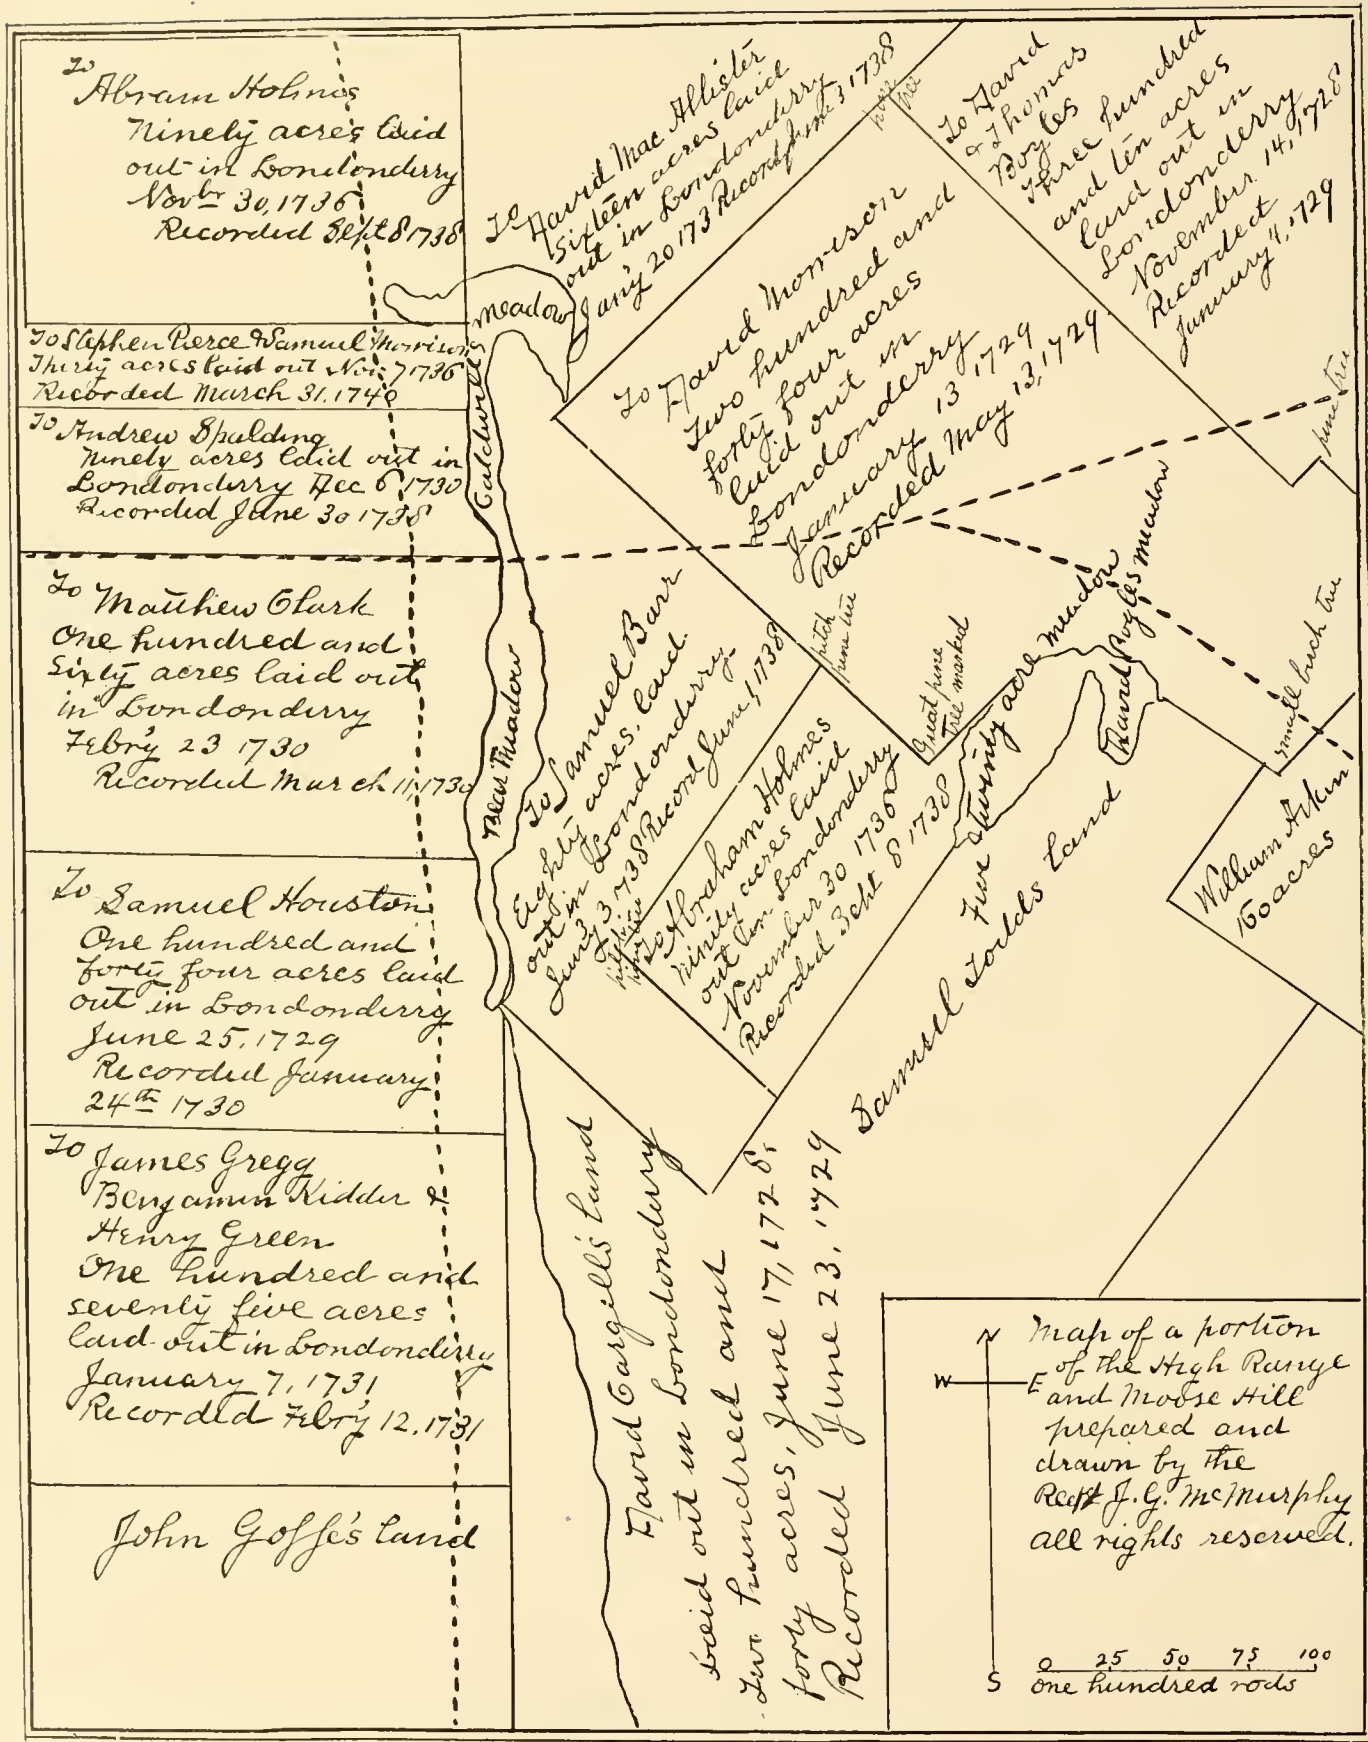 To
Abram Holmes
Ninety acres laid
out in Londonderry
Novbr 30, 1736
Recorded Sept 8 1738
To Stephen Pierce & Samuel Morrison
Thirty acres laid out Nov. 7 1736
Recorded March 31. 1740
To Andrew Spalding
Ninety acres laid out in
Londonderry Dec 6 1730
Recorded June 30 1738
To Matthew Clark
One hundred and
Sixty acres laid out
in Londonderry
Febr'y 23 1730
Recorded March 11, 1730
To Samuel Houston
One hundred and
forty four acres laid
out in Londonderry
June 25, 1729
Recorded January
24th 1730
To James Gregg
Benjamin Kidder &
Henry Green
One hundred and
seventy five acres
laid out in Londonderry
January 7, 1731
Recorded Febr'y 12, 1731
John Goffe's land
To
David Mac Allister
Sixteen acres laid
out in Londonderry
Jan'y 20 173 Record June 3 1738
meadow
Caldwells
Bear Meadow
pine
tree
To David
& Thomas
Boyles
Three hundred
and ten acres
laid out in
Londonderry
November 14, 1728
Recorded
January 4, 1729
pine tree
To David Morrison
Two hundred and
forty four acres
laid out in
Londonderry
January 13 1729
Recorded May 13, 1729
pitch
pine tree
Great pine
Tree marked
To Samuel Barr
Eighty acres. laid
out in Londonderry
Jan'y 3, 1738 Record June 1, 1738
pitch
pine tree
To Abraham Holmes
Ninety acres laid
out in Londonderry
November 30 1736
Recorded Seht 8 1738
Five & Twenty acre meadow
David Boyles meadow
small buch tree
William Aikin
60 acres
Samuel Todds Land
David Cargill's land
David
Laid out in Londonderry
Two hundred and
forty acres, June 17, 1728.
Recorded June 23, 1729
N
W
E
S
Map of a portion
of the High Range
and Moose Hill
prepared and
drawn by the
J. G. McMurphy
all rights reserved.
0 25 50 75 100
one hundred rods